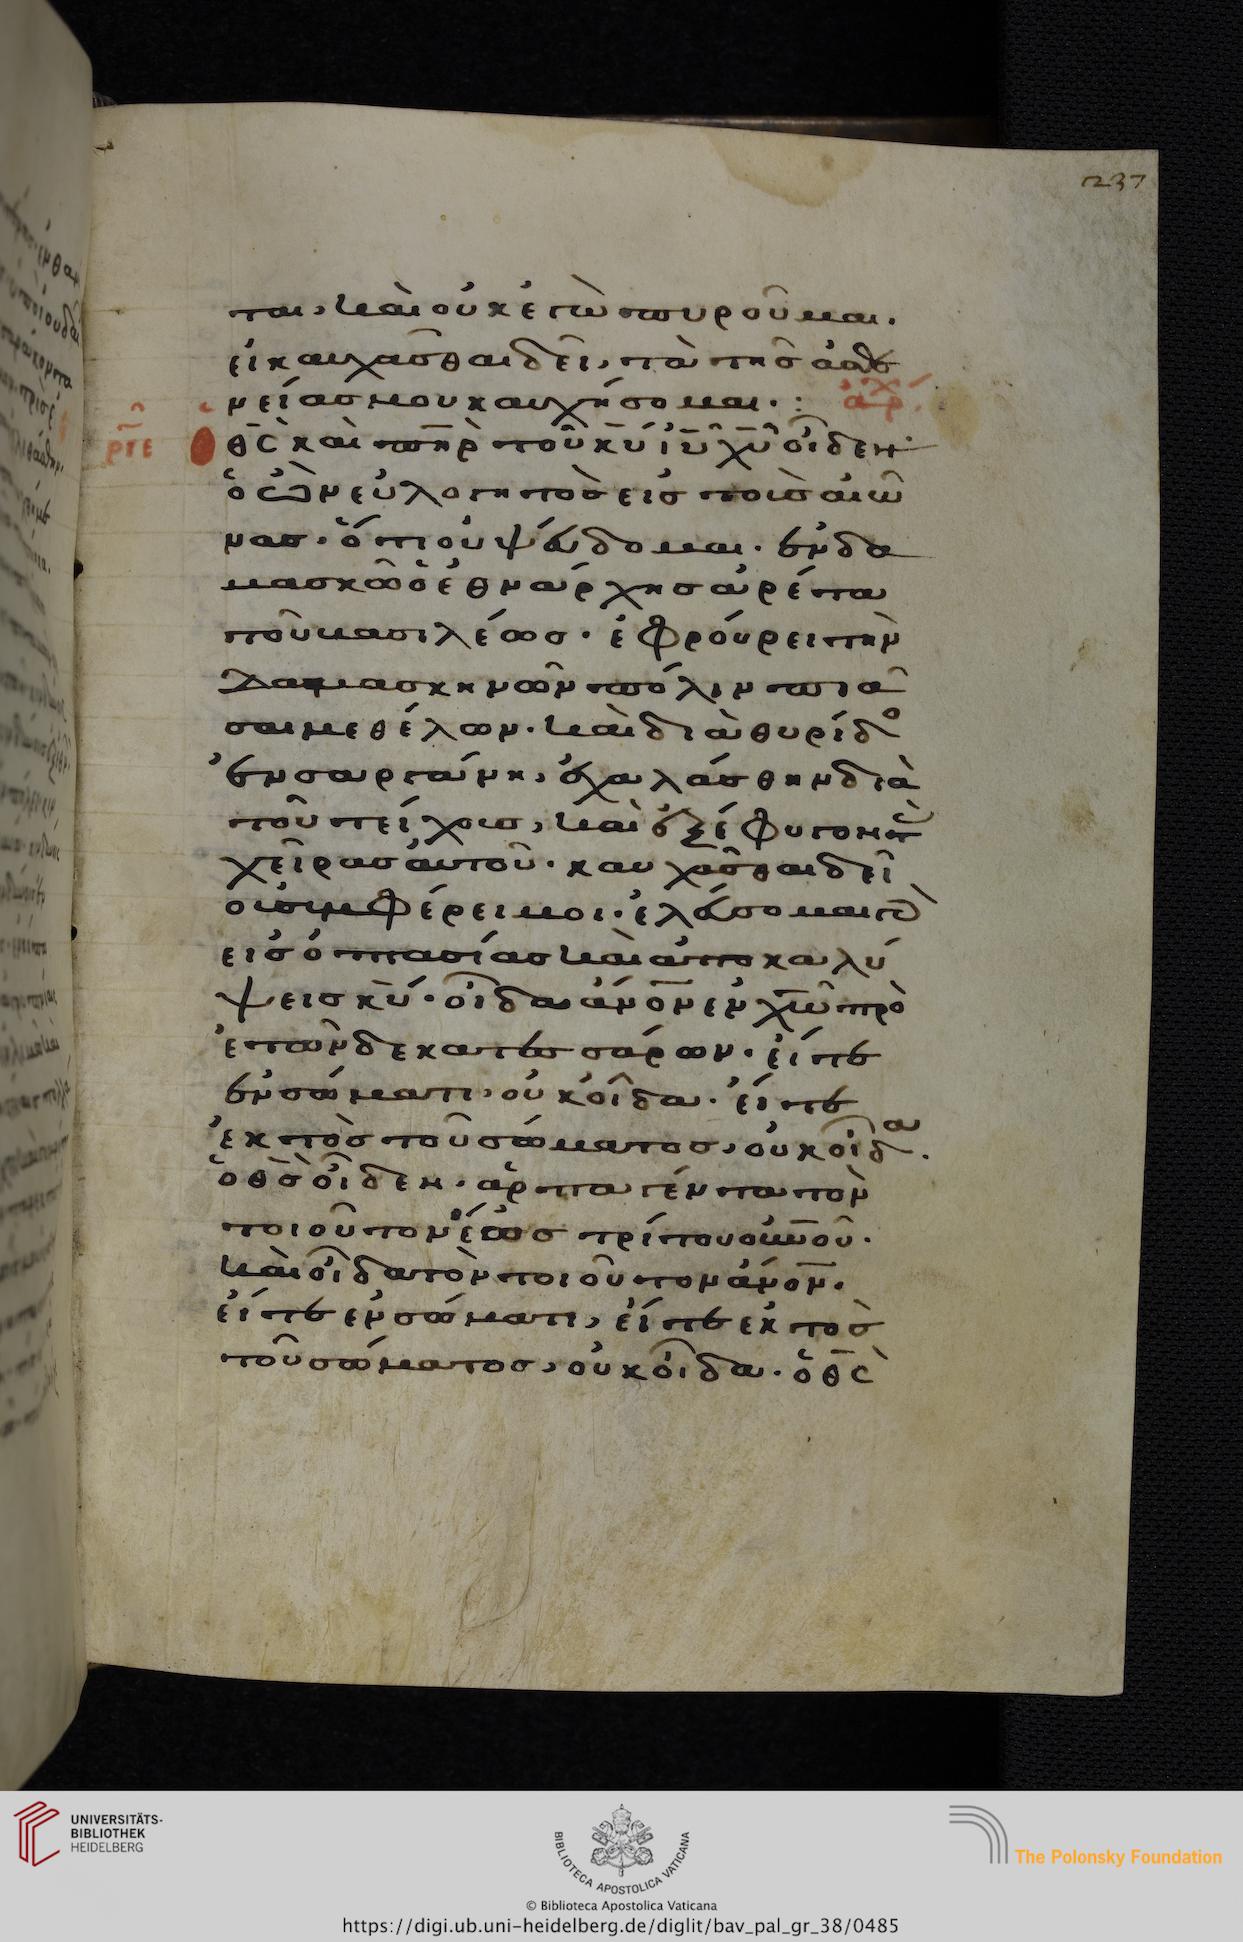 237
ται, καὶ οὐκ ἐγὼ πυροῦμαι.
εἰ καυχᾶσθαι δεῖ, τὰ τῆς ἀσθε
νείας μου καυχήσομαι. : ἀρχ
ὁ θ̅ς̅ καὶ π̅η̅ρ̅ τοῦ κ̅υ̅ ἰ̅υ̅ χ̅υ̅ οἶδεν·
ὁ ὢν εὐλογητὸς εἰς τοὺς αἰῶ
νας. ὅτι οὐ ψεύδομαι. ἐν δα
μασκῶ ὁ ἐθνάρχης ἀρέτα
τοῦ βασιλέως. ἐφρούρει τὴν
δαμασκηνῶν πόλιν πιά
σαι με θέλων. καὶ διὰ θυρίδο
ἐν σαργάνη, ἐχαλάσθην διὰ
τοῦ τείχους, καὶ ἐξέφυγον τὰς
χεῖρας αὐτοῦ. καυχᾶσθαι δεῖ
οὐ συμφέρει μοι. ἐλεύσομαι γὰρ
εἰς ὀπτασίας καὶ ἀποκαλύ
ψεις κ̅υ̅. οἶδα ἄν̅ο̅ν̅ ἐν χ̅ω̅ πρὸ
ἐτῶν δεκατεσσάρων. εἴτε
ἐν σώματι, οὐκ οἶδα. εἴτε
ἐκτὸς τοῦ σώματος, οὐκ οἶδα.
ὁ θ̅ς̅ οἶδεν. ἁρπαγέντα τὸν
τοιοῦτον ἕως τρίτου οὐ̅ν̅οῦ.
καὶ οἶδα τὸν τοιοῦτον ἄν̅ο̅ν̅.
εἴτε ἐν σώματι, εἴτε ἐκτὸς
τοῦ σώματος, οὐκ οἶδα. ὁ θ̅ς̅
UNIVERSITÄTS-
BIBLIOTHEK
HEIDELBERG
BIBLIOTECA APOSTOLICA VATICANA
© Biblioteca Apostolica Vaticana
The Polonsky Foundation
https://digi.ub.uni-heidelberg.de/diglit/bav_pal_gr_38/0485